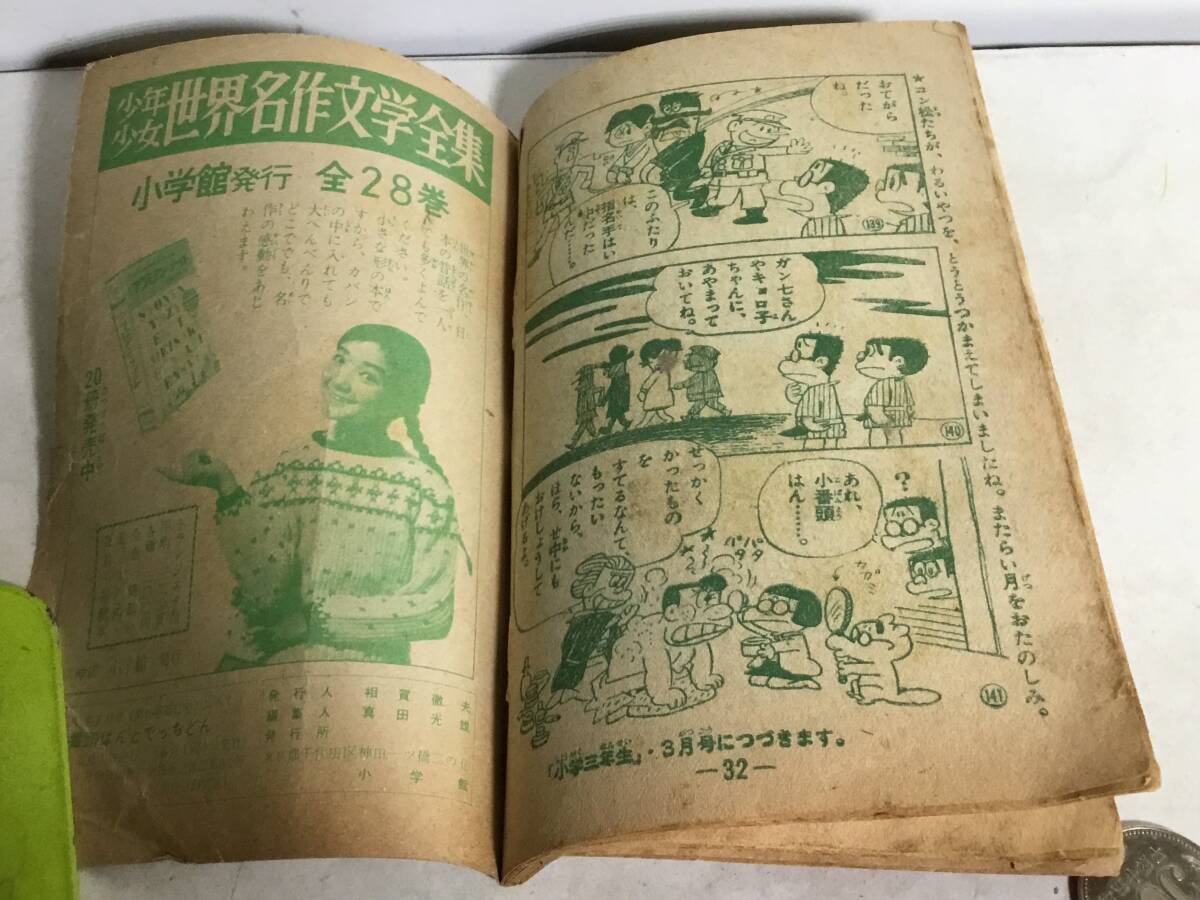 ★コン松たちが、わるいやつを、とうとうつかまえてしまいましたね。またらい月をおたのしみ。
おてがら
だった
ね。
このふたり
は、
指名手はい
中だった
んだ……。
139
ガン七さん
やキョロ子
ちゃんに、
あやまって
おいてね。
140
?
あれ、
小番頭
はん……。
せっかく
かったもの
を
すてるなんて、
もったい
ないから、
ほら、せ中にも
おけしょうして
あげるよ。
パタ
パタ
カガミ
141
「小学三年生」・3月号につづきます。
—32—
少年
少女
世界名作文学全集
小学館発行 全28巻
世界の名作、日
本の昔話を、一人
でも多くよんで
ください。
小さな形の本で
すから、カバン
の中に入れても
大へんべんりで
どこででも、名
作の感動をあじ
わえます。
20冊発売中
発行人 相賀徹夫
編集人 真田光雄
発行所
小学館